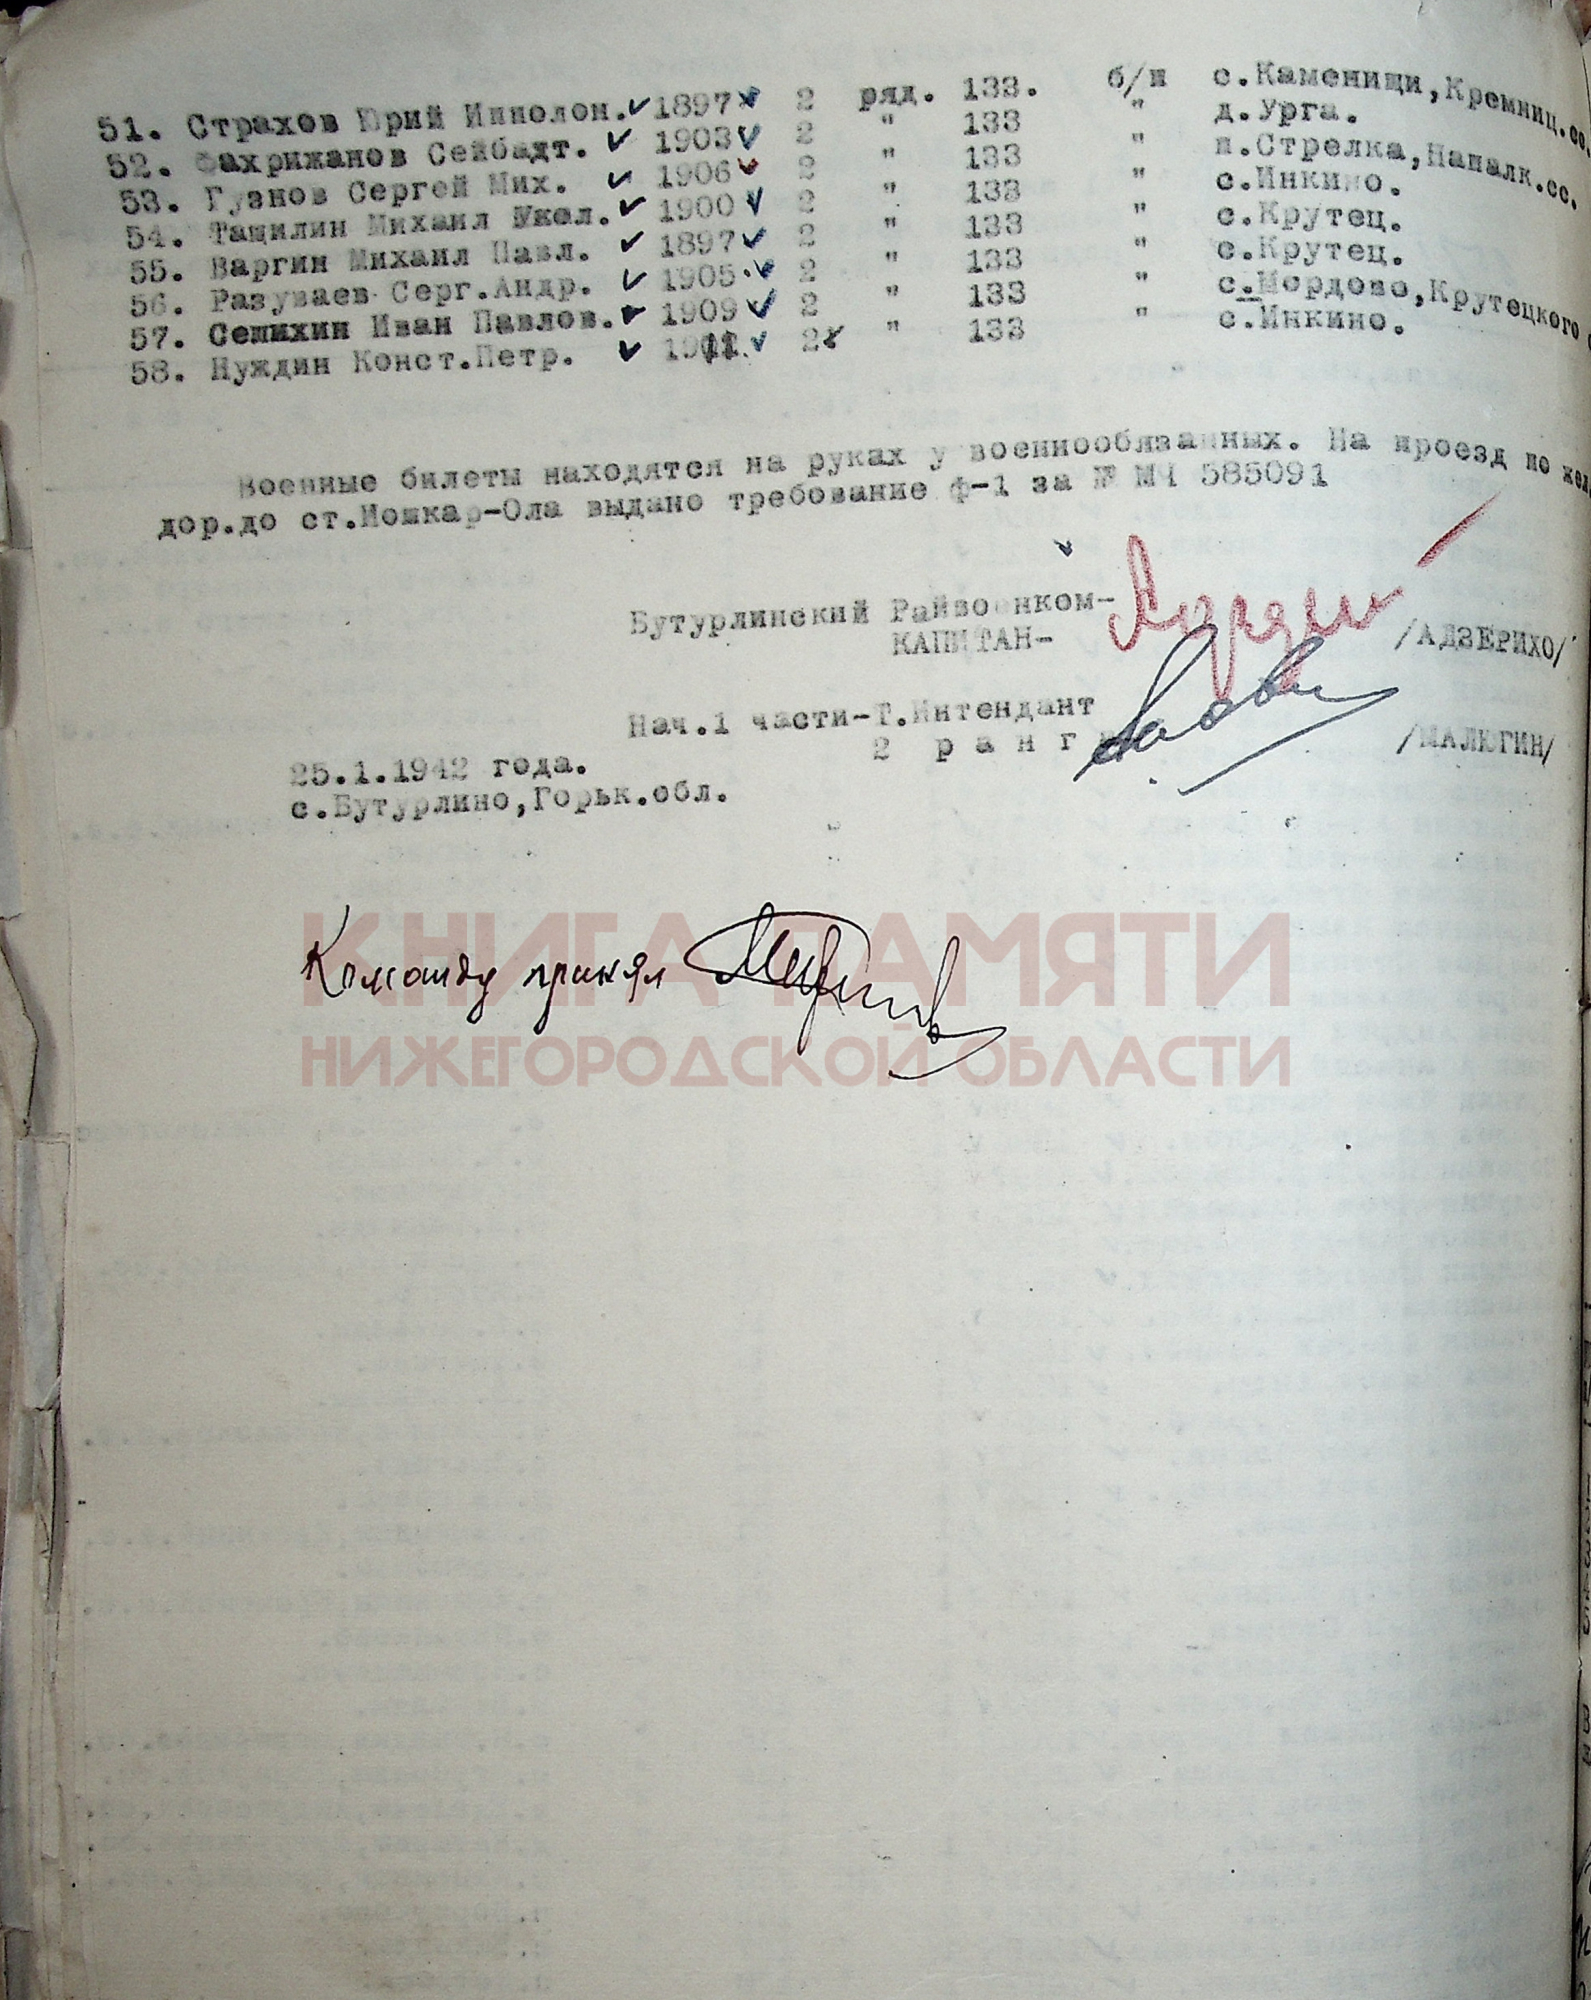 51. Страхов Юрий Ипполон. 1897 2 ряд. 133. б/п с.Каменищи,Кремниц.сс.
52. Фахрижанов Сейбадт. 1903 2 " 133 " д.Урга.
53. Гузнов Сергей Мих. 1906 2 " 133 " п.Стрелка,Напалк.сс.
54. Тащилин Михаил 1900 2 " 133 " с.Инкино.
55. Варгин Михаил Павл. 1897 2 " 133 " с.Крутец.
56. Разуваев Серг.Андр. 1905. 2 " 133 " с.Крутец.
57. Семихин Иван Павлов. 1909 2 " 133 " с.Мордово,Крутецкого
58. Нуждин Конст.Петр. 2 " 133 " с.Инкино.
Военные билеты находятся на руках у военнообязанных. На проезд по жел
дор.до ст.Йошкар-Ола выдано требование ф-1 за № МЧ 585091
Бутурлинский Райвоенком-
КАПИТАН- /АДЗЕРИХО/
Нач.1 части-Т.Интендант
2 ранг /МАЛЮГИН/
25.1.1942 года.
с.Бутурлино,Горьк.обл.
Команду принял
КНИГА ПАМЯТИ
НИЖЕГОРОДСКОЙ ОБЛАСТИ